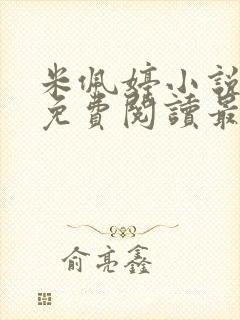 米佩婷小說
免費閱讀最
俞亮鑫